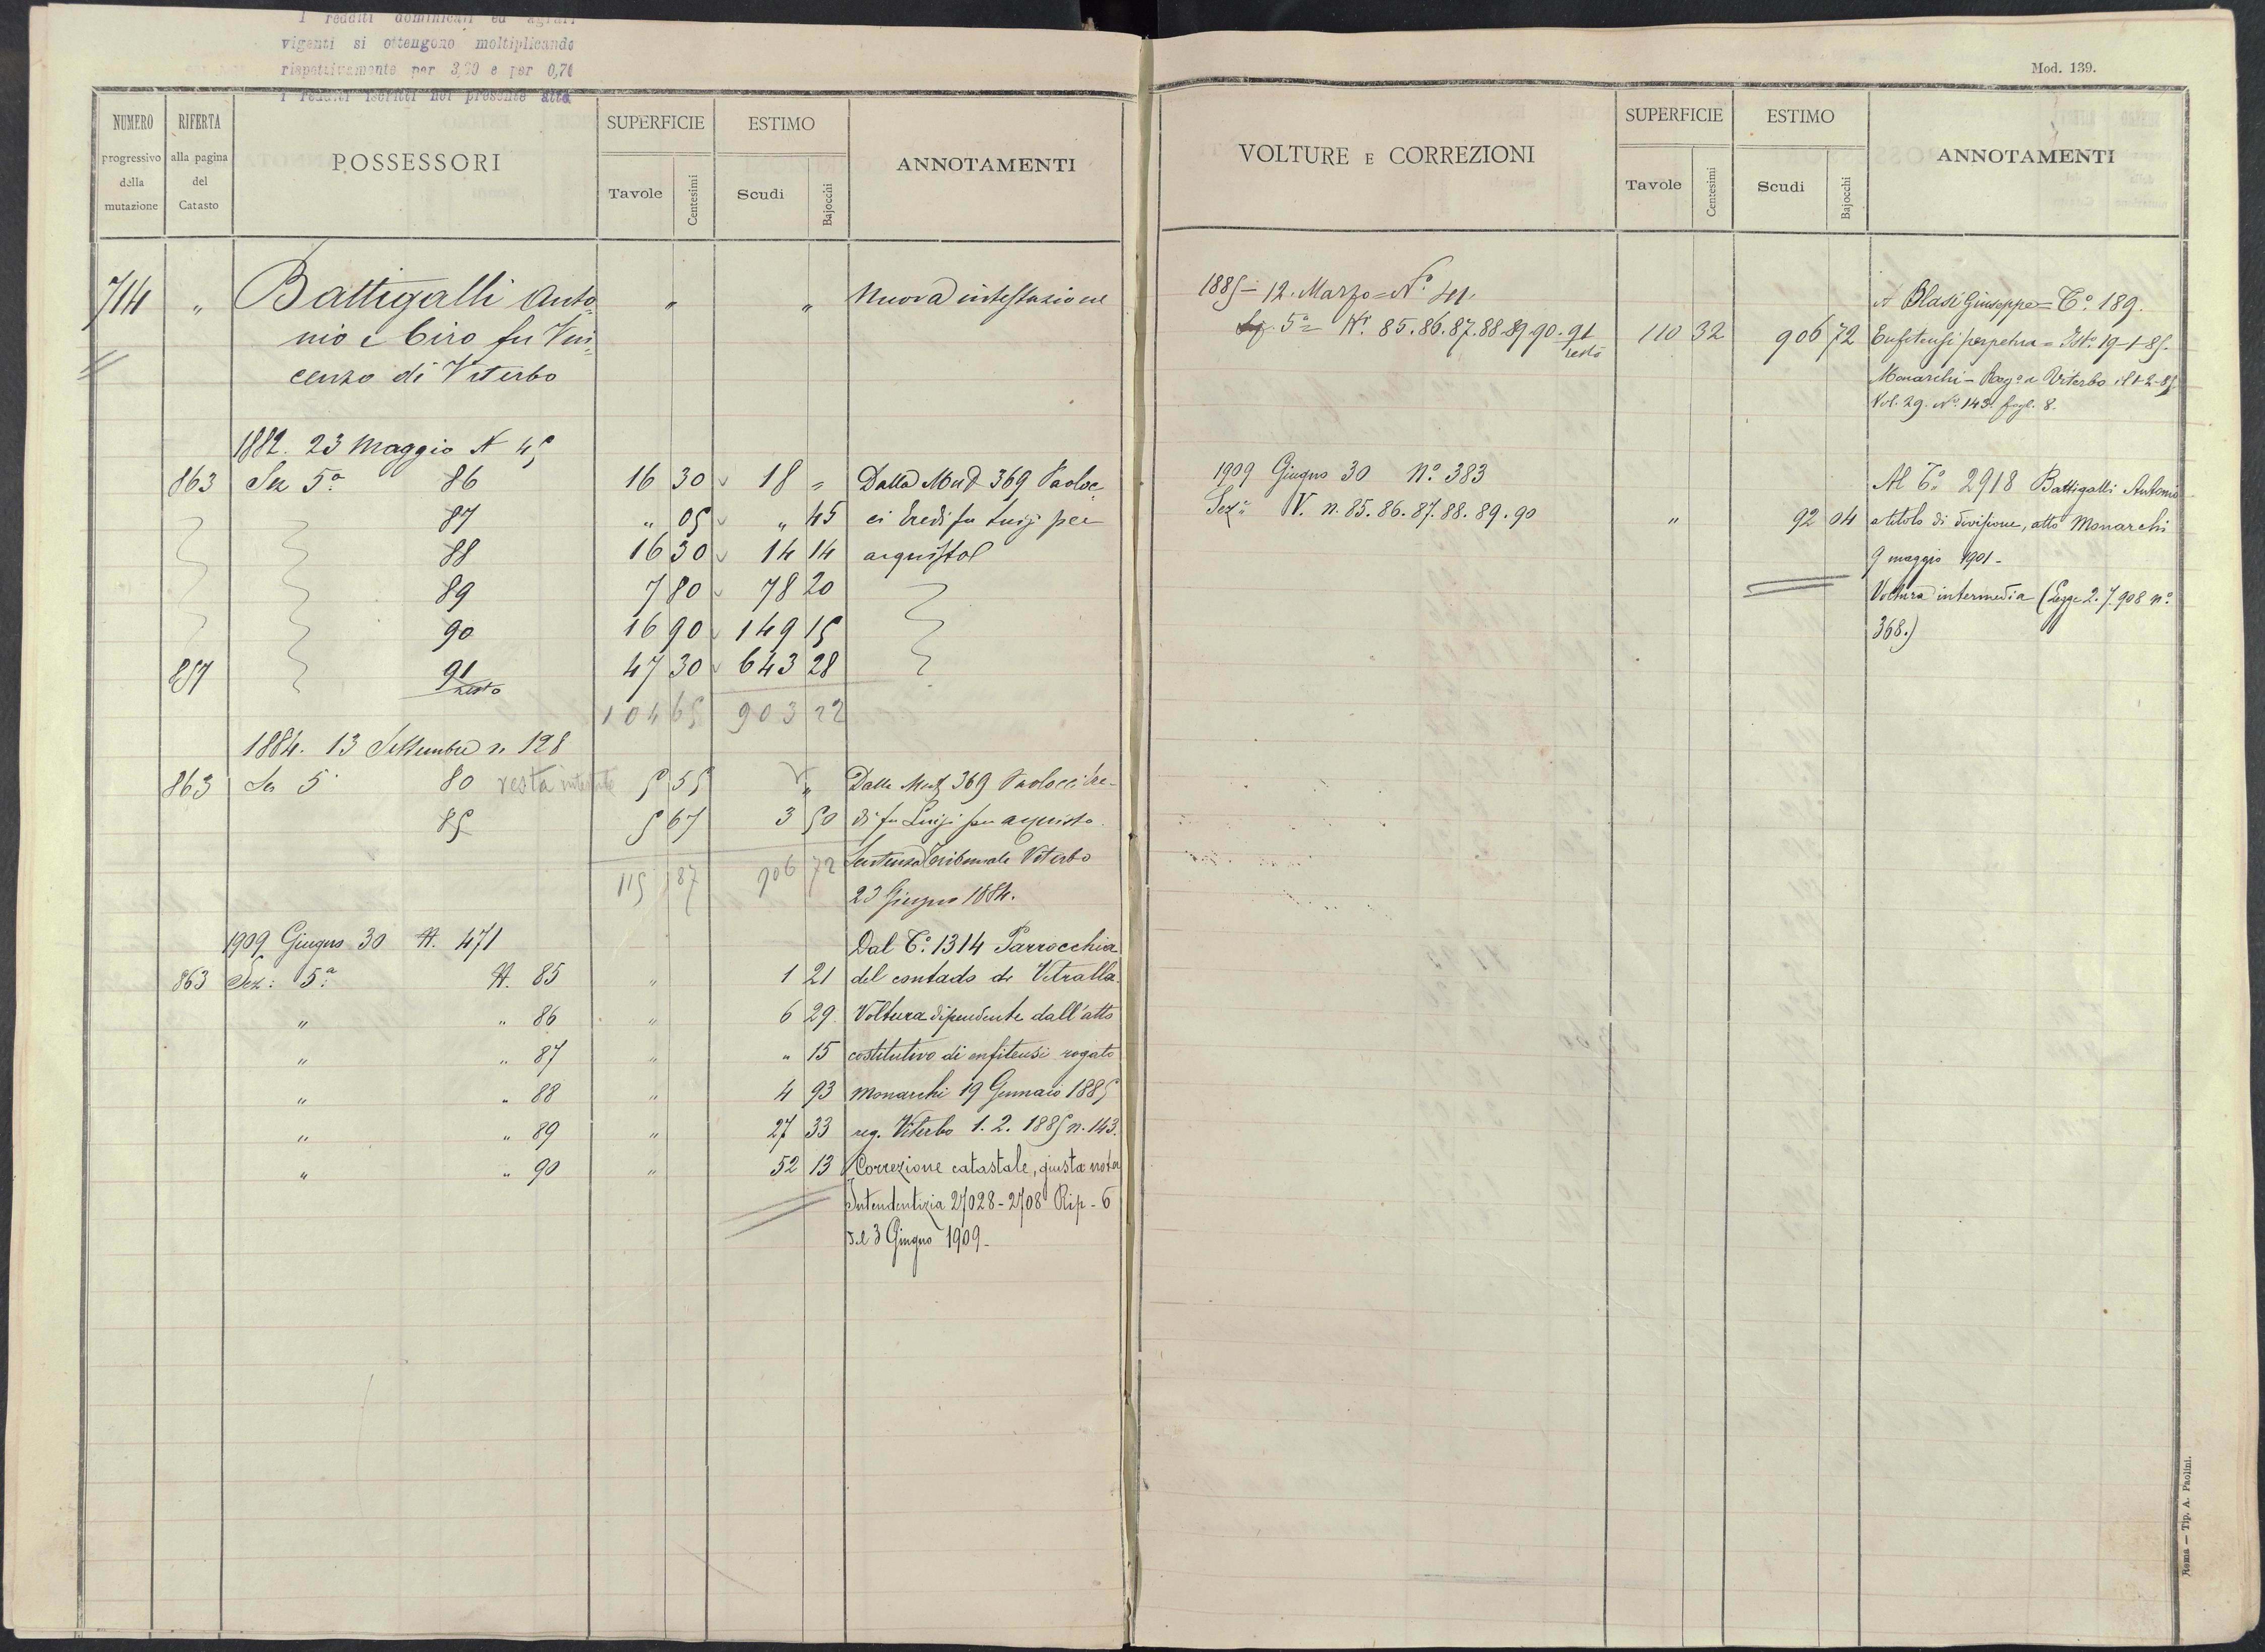 I redditi dominicali ed agrari
vigenti si ottengono moltiplicando
rispettivamente per 3,20 e per 0,70
i redditi iscritti nel presente atto
NUMERO progressivo della mutazione
RIFERTA alla pagina del Catasto
POSSESSORI
SUPERFICIE Tavole Centesimi
ESTIMO Scudi Bajocchi
ANNOTAMENTI
714 " Battigalli Anto- " " Nuova intestazione
nio e Ciro fu Vin=
cenzo di Viterbo
1882. 23 Maggio N 45
863 Sez 5a 86 16 30 18 = Dalla Mut 369 Paoloc-
87 " 05 " 45 ci Eredi fu Luigi per
88 16 30 14 14 acquisto
89 7 80 78 20
90 16 90 149 15
857 91 resto 47 30 643 28
104 65 903 22
1884. 13 Settembre n 128
863 Se 5 80 resta 5 55 " Dalla Mut 369 Paolocci Ere-
85 5 67 3 50 di fu Luigi per acquisto.
115 87 906 72 Sentenza Tribunale Viterbo
23 Giugno 1884.
1909 Giugno 30 N. 471 Dal T.o 1314 Parrocchia
863 Sez: 5a N. 85 " 1 21 del contado di Vetralla.
" " 86 " 6 29 Voltura dipendente dall'atto
" " 87 " " 15 costitutivo di enfiteusi rogato
" " 88 " 4 93 Monarchi 19 Gennaio 1885
" " 89 " 27 33 reg. Viterbo 1. 2. 1885 n. 143.
" " 90 " 52 13 Correzione catastale, giusta nota
Intendentizia 27028-2708 Rip-6
del 3 Giugno 1909-
Mod. 139.
VOLTURE E CORREZIONI
SUPERFICIE Tavole Centesimi
ESTIMO Scudi Bajocchi
ANNOTAMENTI
1885 = 12. Marzo = No. 41. A Blasi Giuseppe = To. 189.
5a = Ni. 85.86.87.88.89.90.91 resto 110 32 906 72 Enfiteusi perpetua = Isto. 19-1-85.
Monarchi - Viterbo il 1-2-85
Vol. 29. No. 143. fogl. 8.
1909 Giugno 30 No. 383 Al To. 2918 Battigalli Antonio
Seza. V. n. 85.86.87.88.89.90 " 92 04 a titolo di divisione, atto Monarchi
9 maggio 1901-
Voltura intermedia (Legge 2.7.908 no.
368.)
Roma — Tip. A. Paolini.